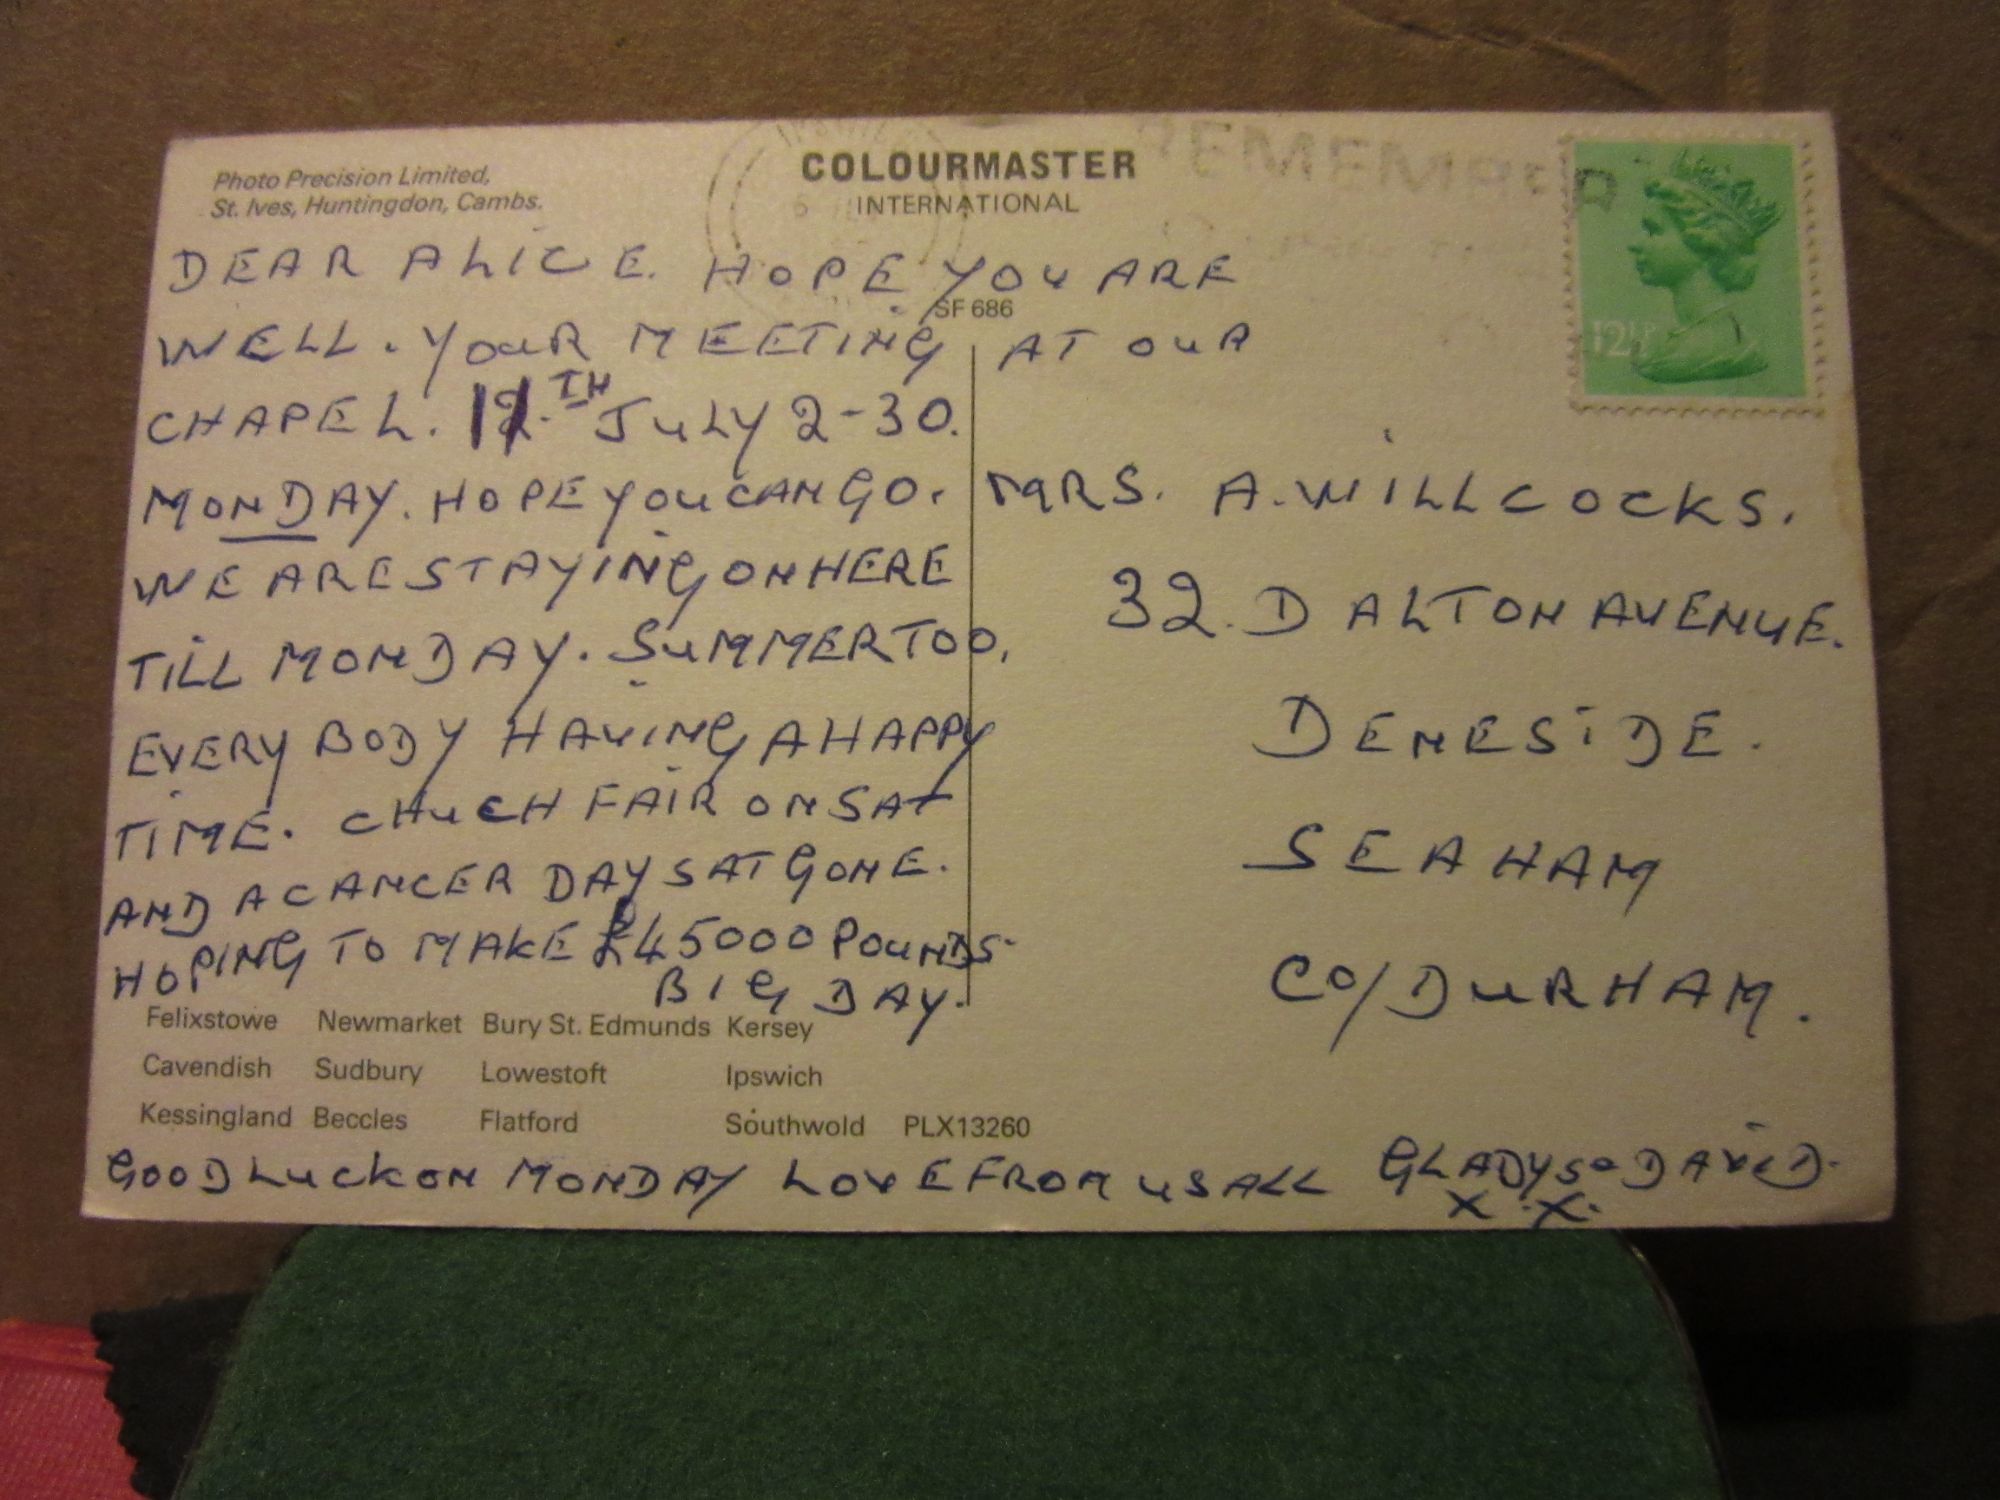 Photo Precision Limited,
St. Ives, Huntingdon, Cambs.
COLOURMASTER
INTERNATIONAL
REMEMBER
12½P
SF 686
DEAR ALICE. HOPE YOU ARE
WELL. YOUR MEETING AT OUR
CHAPEL. 12TH JULY 2-30.
MONDAY. HOPE YOU CAN GO.
WE ARE STAYING ON HERE
TILL MONDAY. SUMMER TOO.
EVERY BODY HAVING A HAPPY
TIME. CHUCH FAIR ON SAT
AND A CANCER DAY SAT GONE.
HOPING TO MAKE £45000 POUNDS
BIG DAY.
MRS. A. WILLCOCKS.
32. DALTON AVENUE.
DENESIDE.
SEAHAM
CO/DURHAM.
Felixstowe Newmarket Bury St. Edmunds Kersey
Cavendish Sudbury Lowestoft Ipswich
Kessingland Beccles Flatford Southwold PLX13260
GOOD LUCK ON MONDAY LOVE FROM US ALL GLADYS DAVID.
X X